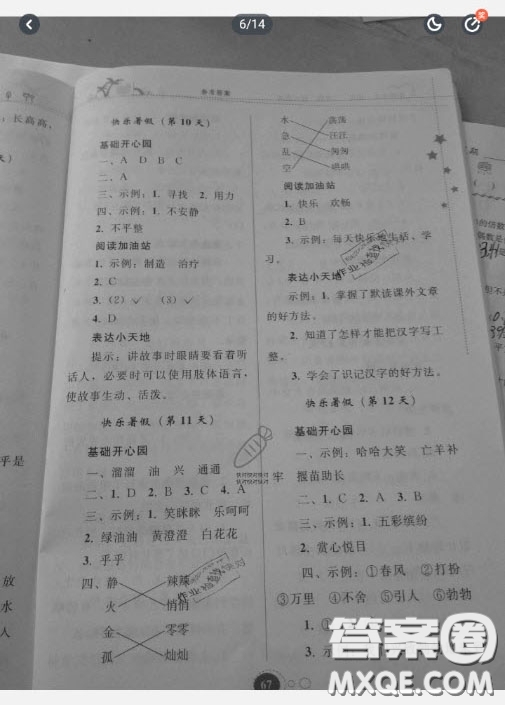 6/14
参考答案
快乐暑假（第 10 天）
基础开心园
一、A D B C
二、A
三、示例：1. 寻找 2. 用力
四、示例：1. 不安静
2. 不平整
阅读加油站
1. 示例：制造 治疗
2. C
3. (2) ✓ (3) ✓
4. D
表达小天地
提示：讲故事时眼睛要看着听
话人，必要时可以使用肢体语言，
使故事生动、活泼。
快乐暑假（第 11 天）
基础开心园
一、溜溜 油 兴 通通
二、1. D 2. B 3. C 4. A
三、示例：1. 笑眯眯 乐呵呵
2. 绿油油 黄澄澄 白花花
3. 平平
四、静 辣辣
火 悄悄
金 零零
孤 灿灿
水 荡荡
急 汪汪
乱 匆匆
空 哄哄
阅读加油站
1. 快乐 欢畅
2. B
3. 示例：每天快乐地生活、学
习。
表达小天地
示例：1. 掌握了默读课外文章
的好方法。
2. 知道了怎样才能把汉字写工
整。
3. 学会了识记汉字的好方法。
快乐暑假（第 12 天）
基础开心园
一、示例：哈哈大笑 亡羊补
牢 揠苗助长
二、1. C 2. A 3. B
三、示例：1. 五彩缤纷
2. 赏心悦目
四、示例：①春风 ②打扮
③万里 ④不舍 ⑤引人 ⑥勃勃
1. ①
3. 示
67
长高高、
乎是
放
水
人
答案圈
MXQE.COM